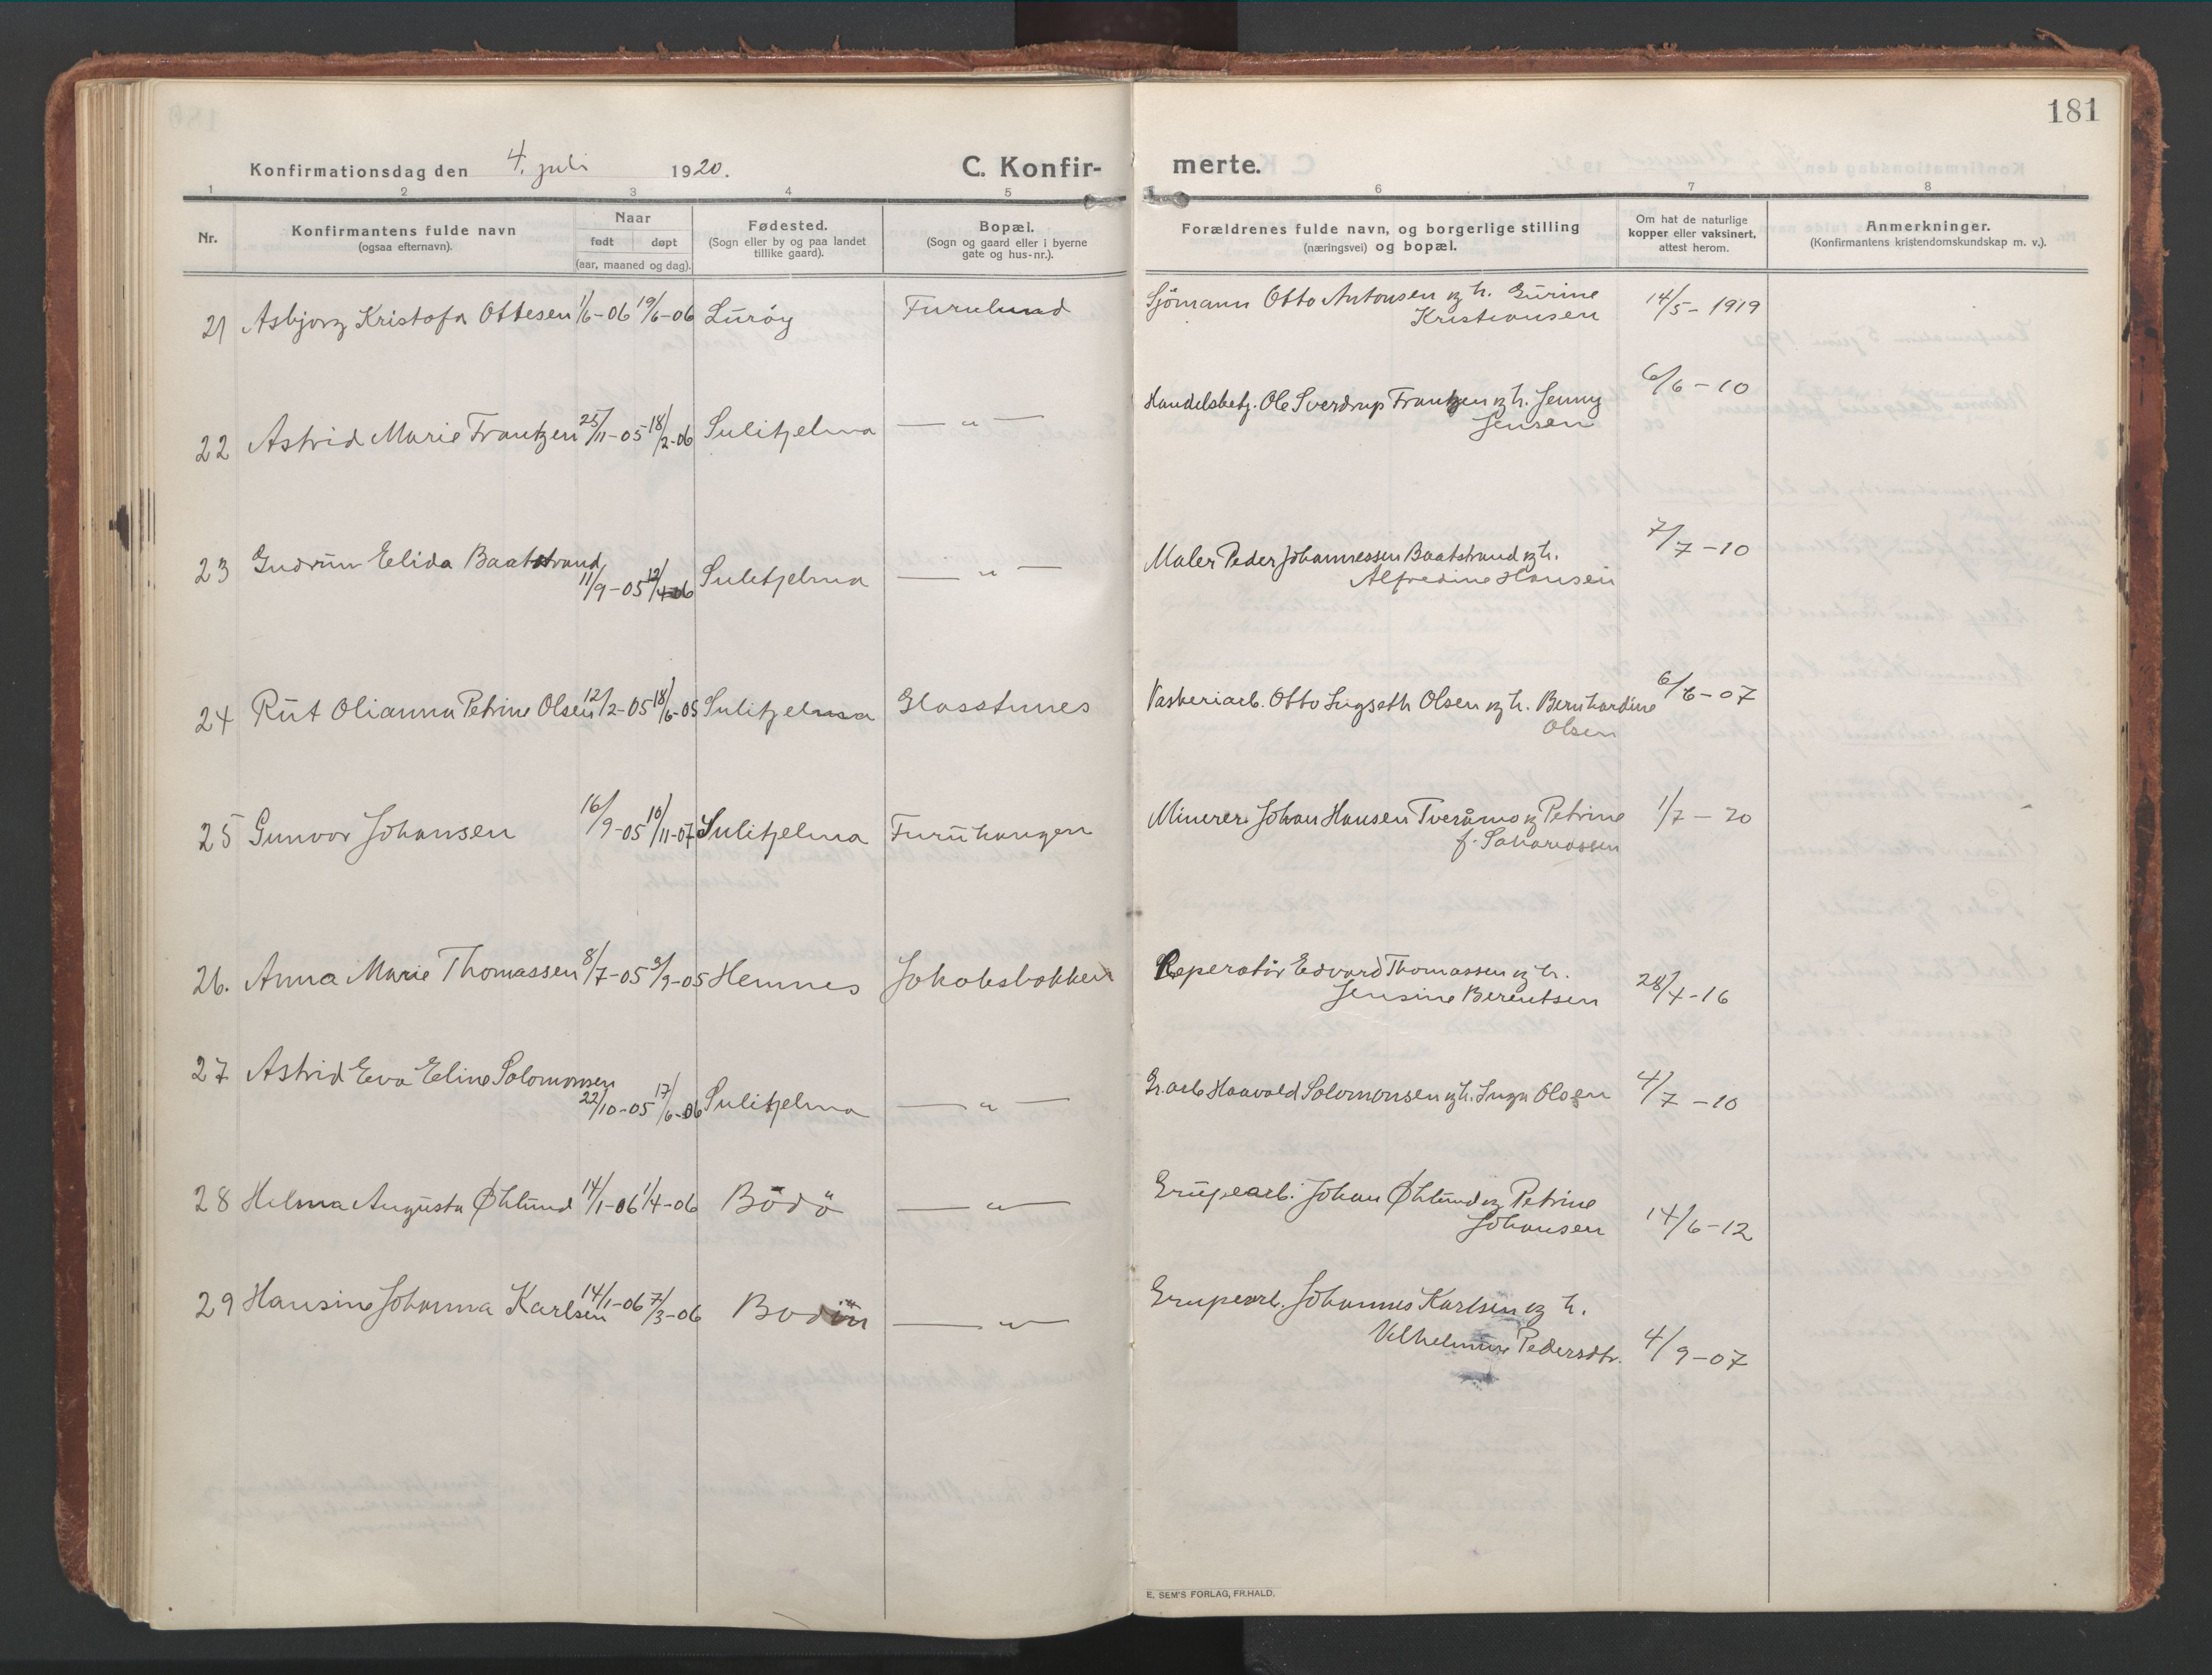 181
Konfirmationsdag den 4. juli 1920.
C. Konfirmerte.
1 2 3 4 5 6 7 8
Nr.
Konfirmantens fulde navn
(ogsaa efternavn).
Naar
født døpt
(aar, maaned og dag).
Fødested.
(Sogn eller by og paa landet
tillike gaard).
Bopæl.
(Sogn og gaard eller i byerne
gate og hus-nr.).
Forældrenes fulde navn, og borgerlige stilling
(næringsvei) og bopæl.
Om hat de naturlige
kopper eller vaksinert,
attest herom.
Anmerkninger.
(Konfirmantens kristendomskundskap m. v.).
21 Asbjørg Kristofa Ottesen 1/6-06 19/6-06 Lurøy Furulund Sjömann Otto Antonsen og h. Gurine
Kristiansen 14/5-1919
22 Astrid Marie Frantzen 25/11-05 18/2-06 Sulitjelma — „ — Handelsbetj. Ole Sverdrup Frantzen og h. Jenny
Jensen 6/6-10
23 Gudrun Elida Baatstrand
11/9-05 12/4-06 Sulitjelma — „ — Maler Peder Johannessen Baatstrand og h.
Alfredine Hansen 7/7-10
24 Rut Olianna Petrine Olsen 12/2-05 18/6-05 Sulitjelma Glasstunes Vaskeriarb. Otto Ingseth Olsen og h. Bernhardine
Olsen 6/6-07
25 Gunvor Johansen 16/9-05 10/11-07 Sulitjelma Furuhaugen Minerer Johan Hansen Tveråmo og Petrine
f. Sakariassen 1/7-20
26. Anna Marie Thomassen 8/7-05 3/9-05 Hemnes Jakobsbakken Reperatör Edvard Thomassen og h.
Jensine Berentsen 28/4-16
27 Astrid Eva Eline Solomonsen
22/10-05 17/6-06 Sulitjelma — „ — Gr.arb Haavald Solomonsen og h. Inga Olsen 4/7-10
28 Hilma Augusta Øhlund 14/1-06 1/4-06 Bodö — „ — Grubearb. Johan Øhlund og Petrine
Johansen 14/6-12
29 Hansine Johanna Karlsen 14/1-06 7/3-06 Bodin — „ — Grubearb. Johannes Karlsen og h.
Vilhelmine Pedersdtr. 4/9-07
E. SEM'S FORLAG, FR.HALD.